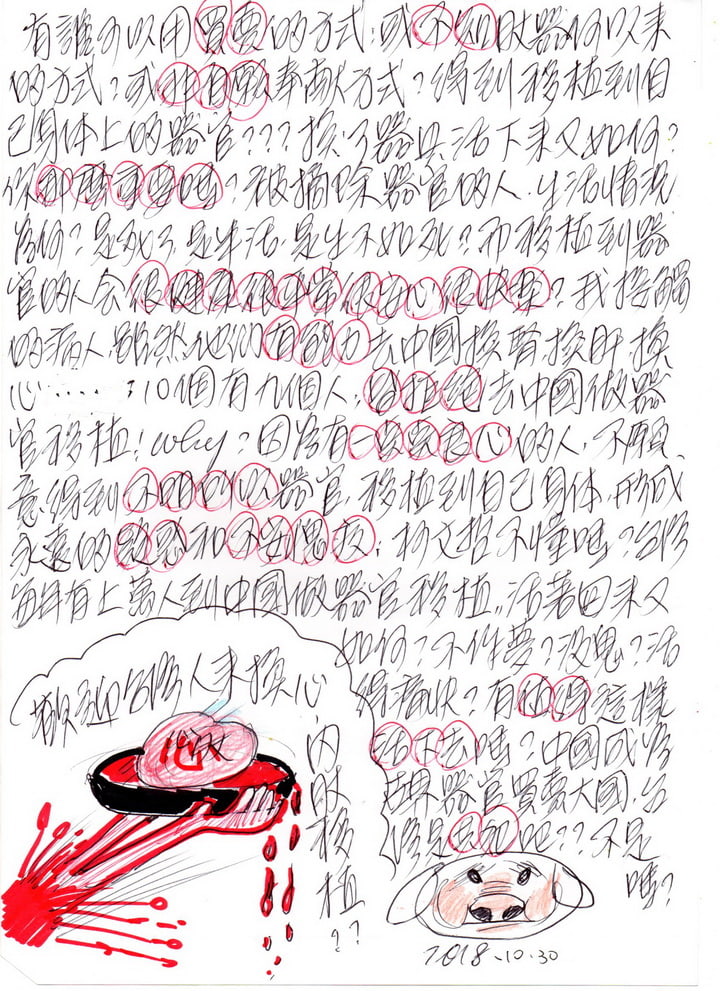 有誰可以用買賣的方式,或不知肚器何以來
的方式?或非自願奉献方式?得到移植到自
己身体上的器官???換了器具活下來又如何?
你那麼重要嗎?被摘除器官的人.生活情況
為何?是死了是生活.是生不如死?而移植到器
官的人会很健康很平常很安心很快樂?我接觸
的病人.雖然他们有能力去中國換腎換肝.換
心‥‥‥?10個有九個人,会拒絕去中國做器
官移植!why?因為有一顆良心的人,不願
意得到不明的器官.移植到自己身体.形成
永遠的疑惑和不安愧疚;柯文哲不懂嗎?台灣
每年有上萬人到中國做器官移植..活著回來又
如何?不作夢?沒鬼?活
得痛快?有值得這樣
活下去嗎?中國成為
世界器官買賣大國.台
灣是吧??不是
嗎?
歡迎台灣人來換心.
內肚移植??
心
2018.10.30